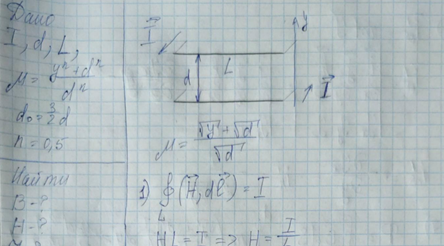 Дано
I, d, L,
μ = (yⁿ + dⁿ)/dⁿ
d₀ = 3/2 d
n = 0,5
Найти
B - ?
H - ?
I⃗
y
d
L
I⃗
μ = (√y + √d)/√d
1) ∮(H⃗, dl⃗) = I
L
HL = I => H = I/L